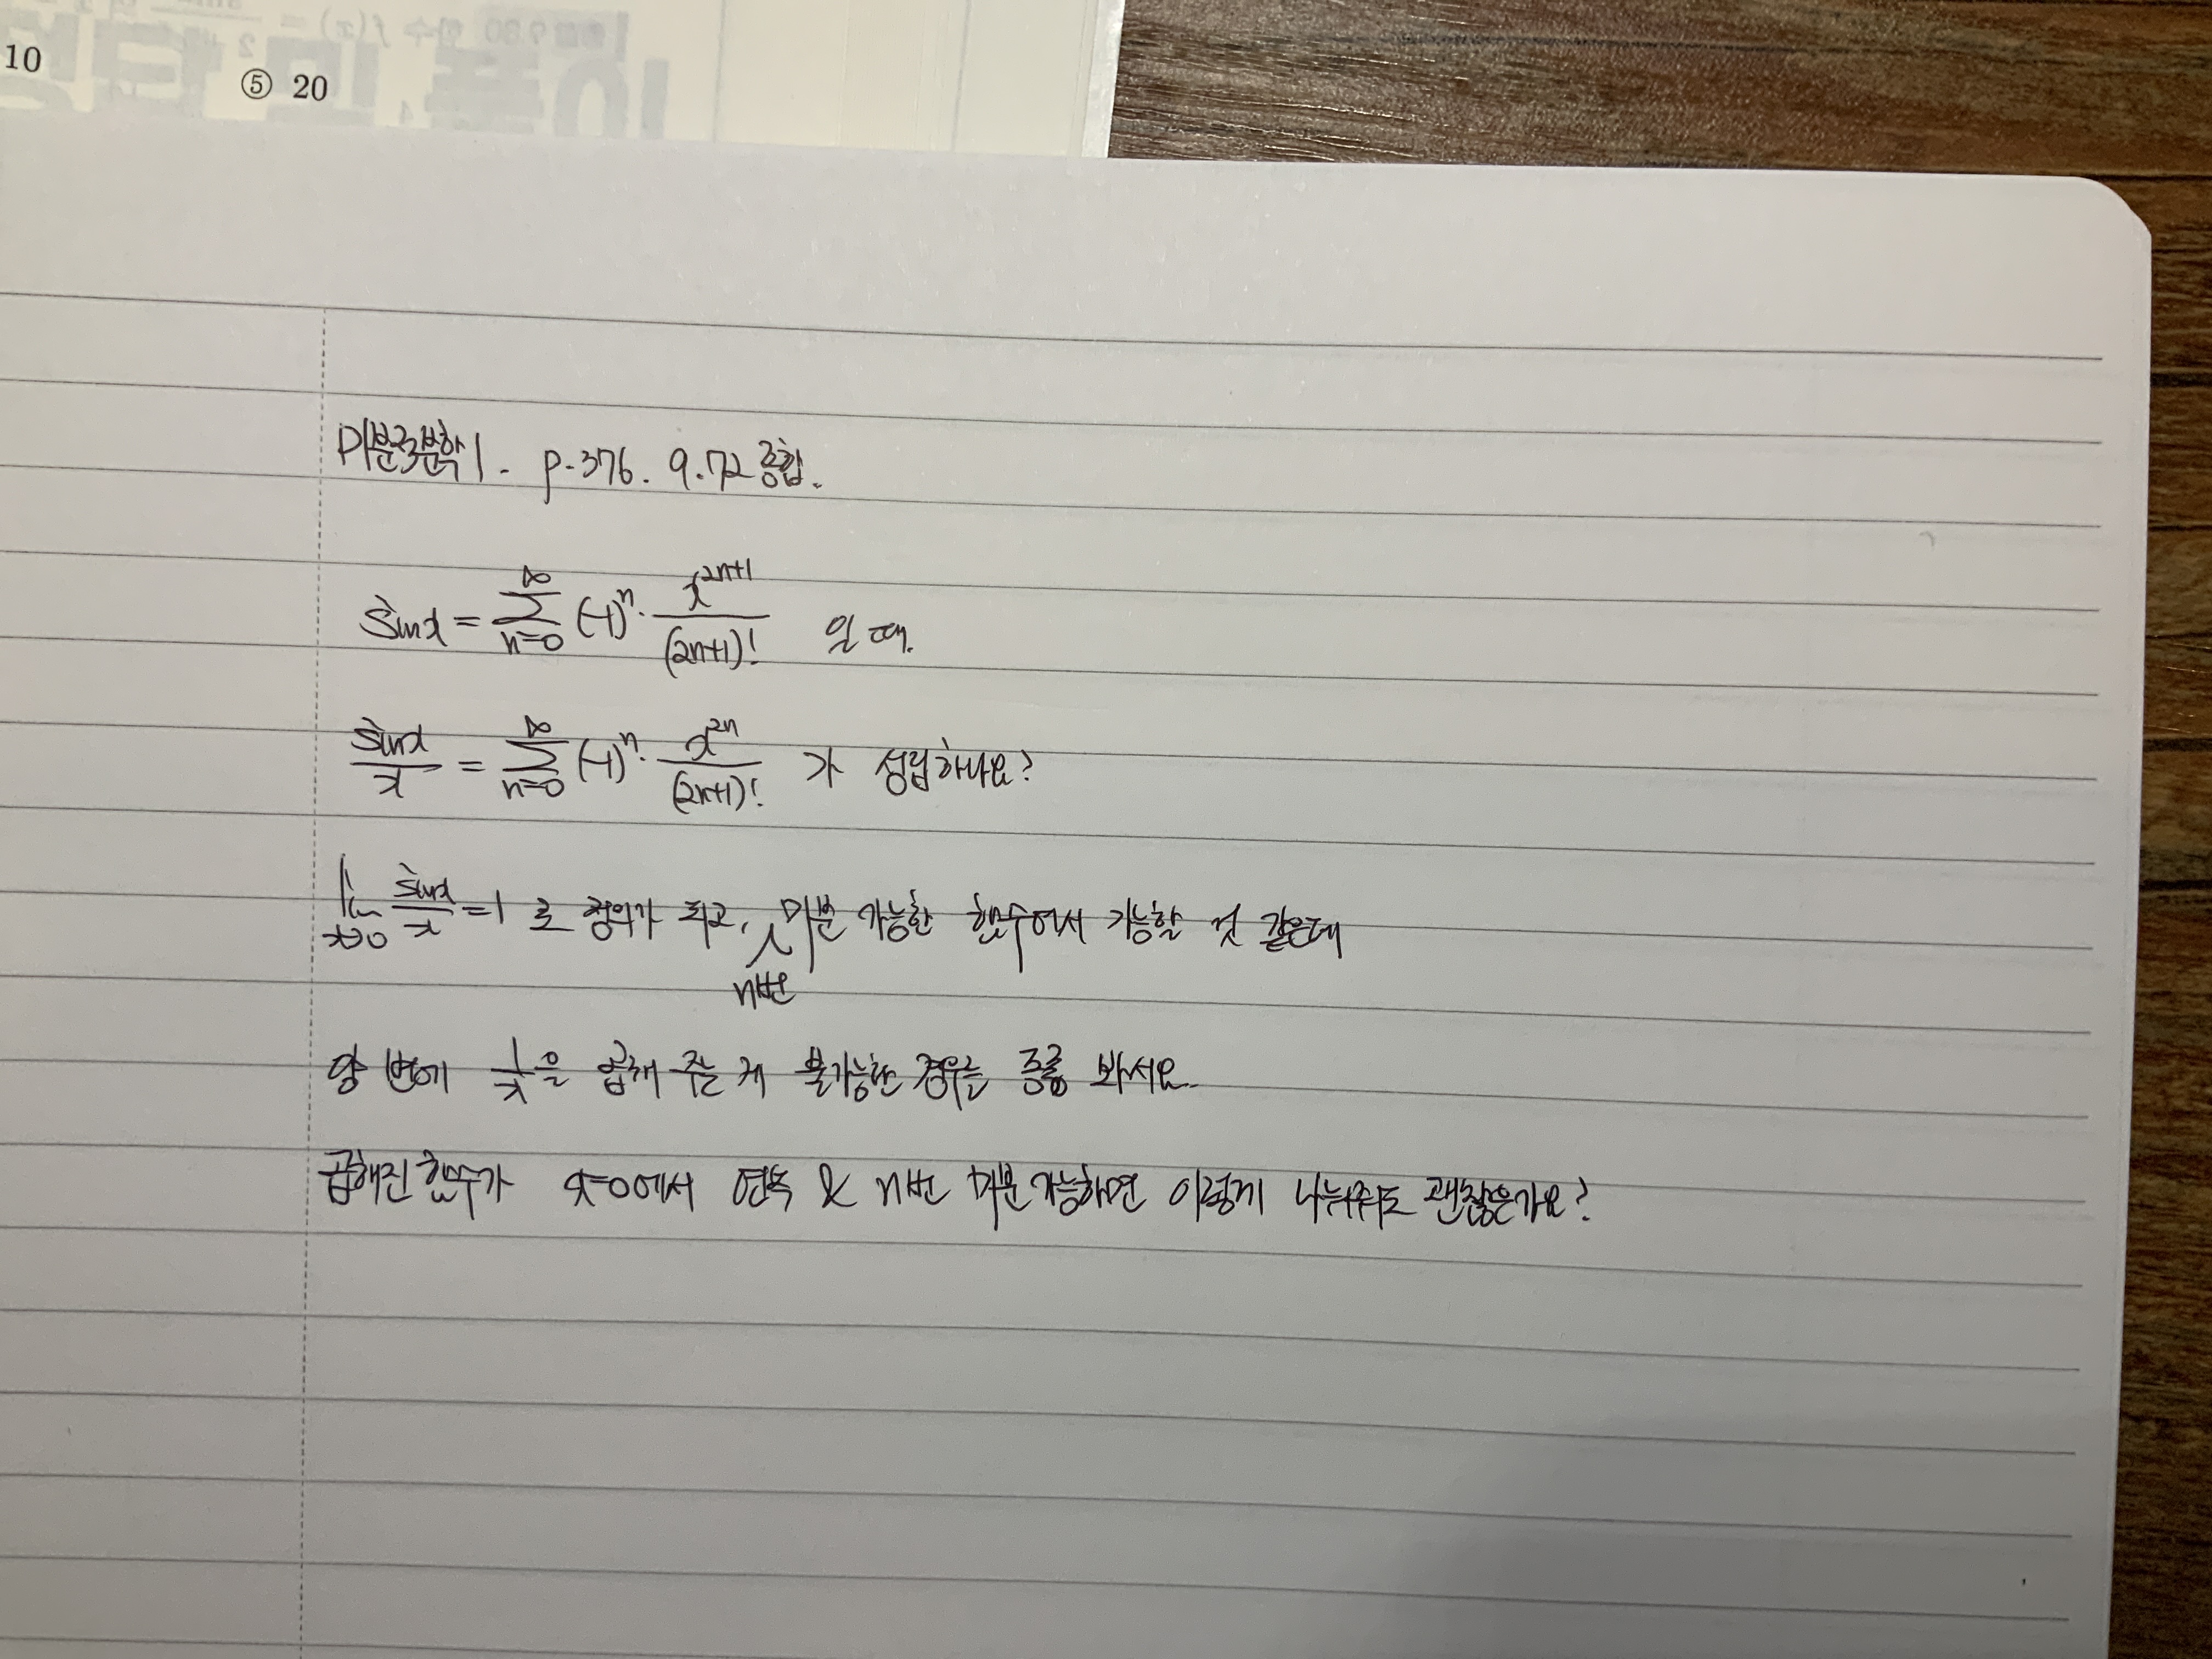 10
⑤ 20
미분적분학 1. p.376. 9.72 종합.
sinx = ∑_{n=0}^{∞} (-1)^n · x^{2n+1}/(2n+1)! 일 때.
sinx/x = ∑_{n=0}^{∞} (-1)^n · x^{2n}/(2n+1)! 가 성립하나요?
lim_{x→0} sinx/x = 1 로 정의가 되고, n번 미분 가능한 함수여서 가능할 것 같은데
양 변에 1/x을 곱해 주는 게 불가능한 경우를 종종 봐서요.
곱해진 함수가 x=0에서 연속 & n번 미분 가능하면 이렇게 나눠줘도 괜찮은가요?